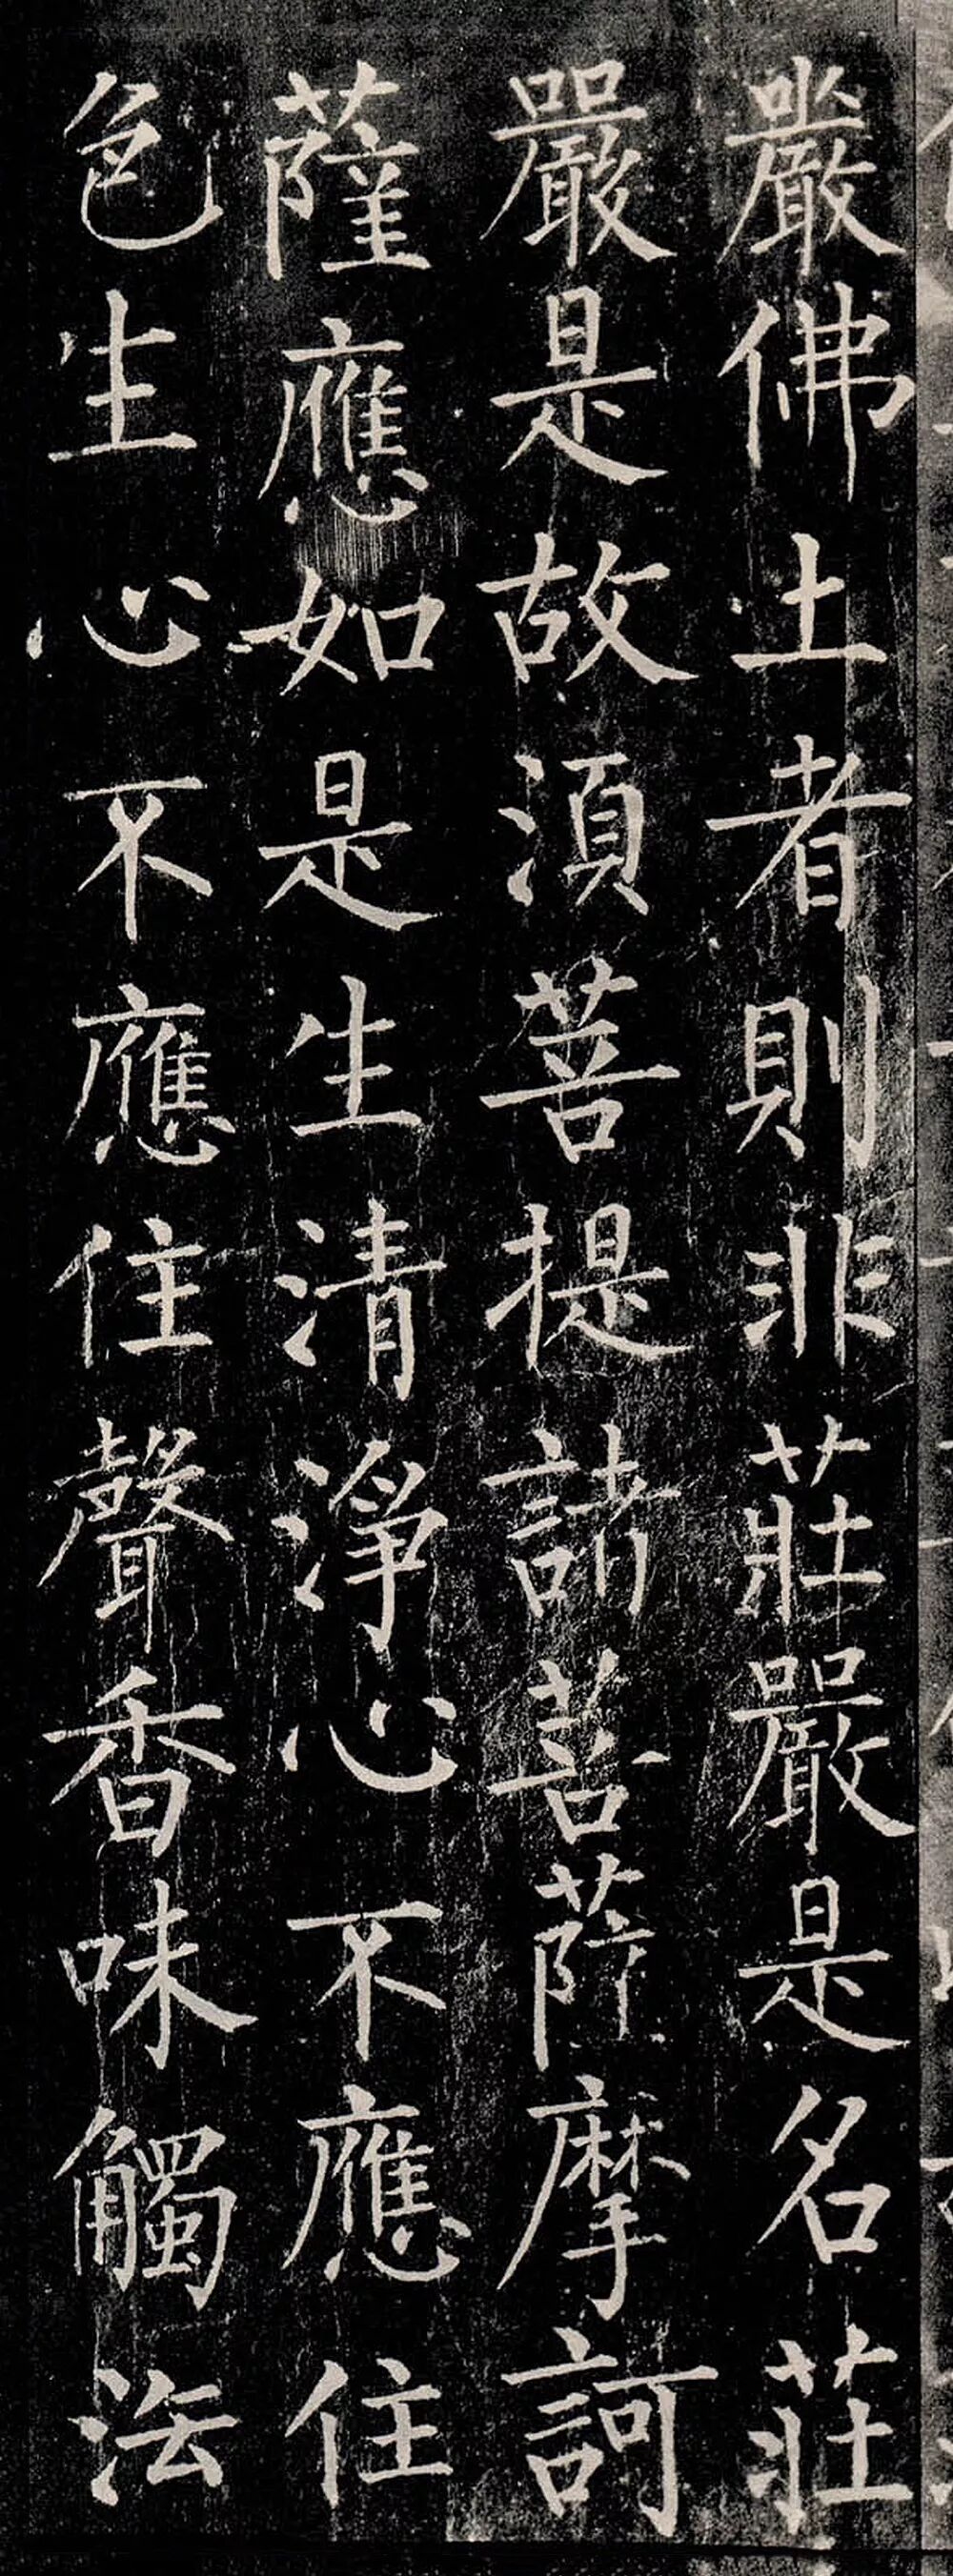 嚴佛土者則非莊嚴是名莊
嚴是故須菩提諸菩薩摩訶
薩應如是生清淨心不應住
色生心不應住聲香味觸法